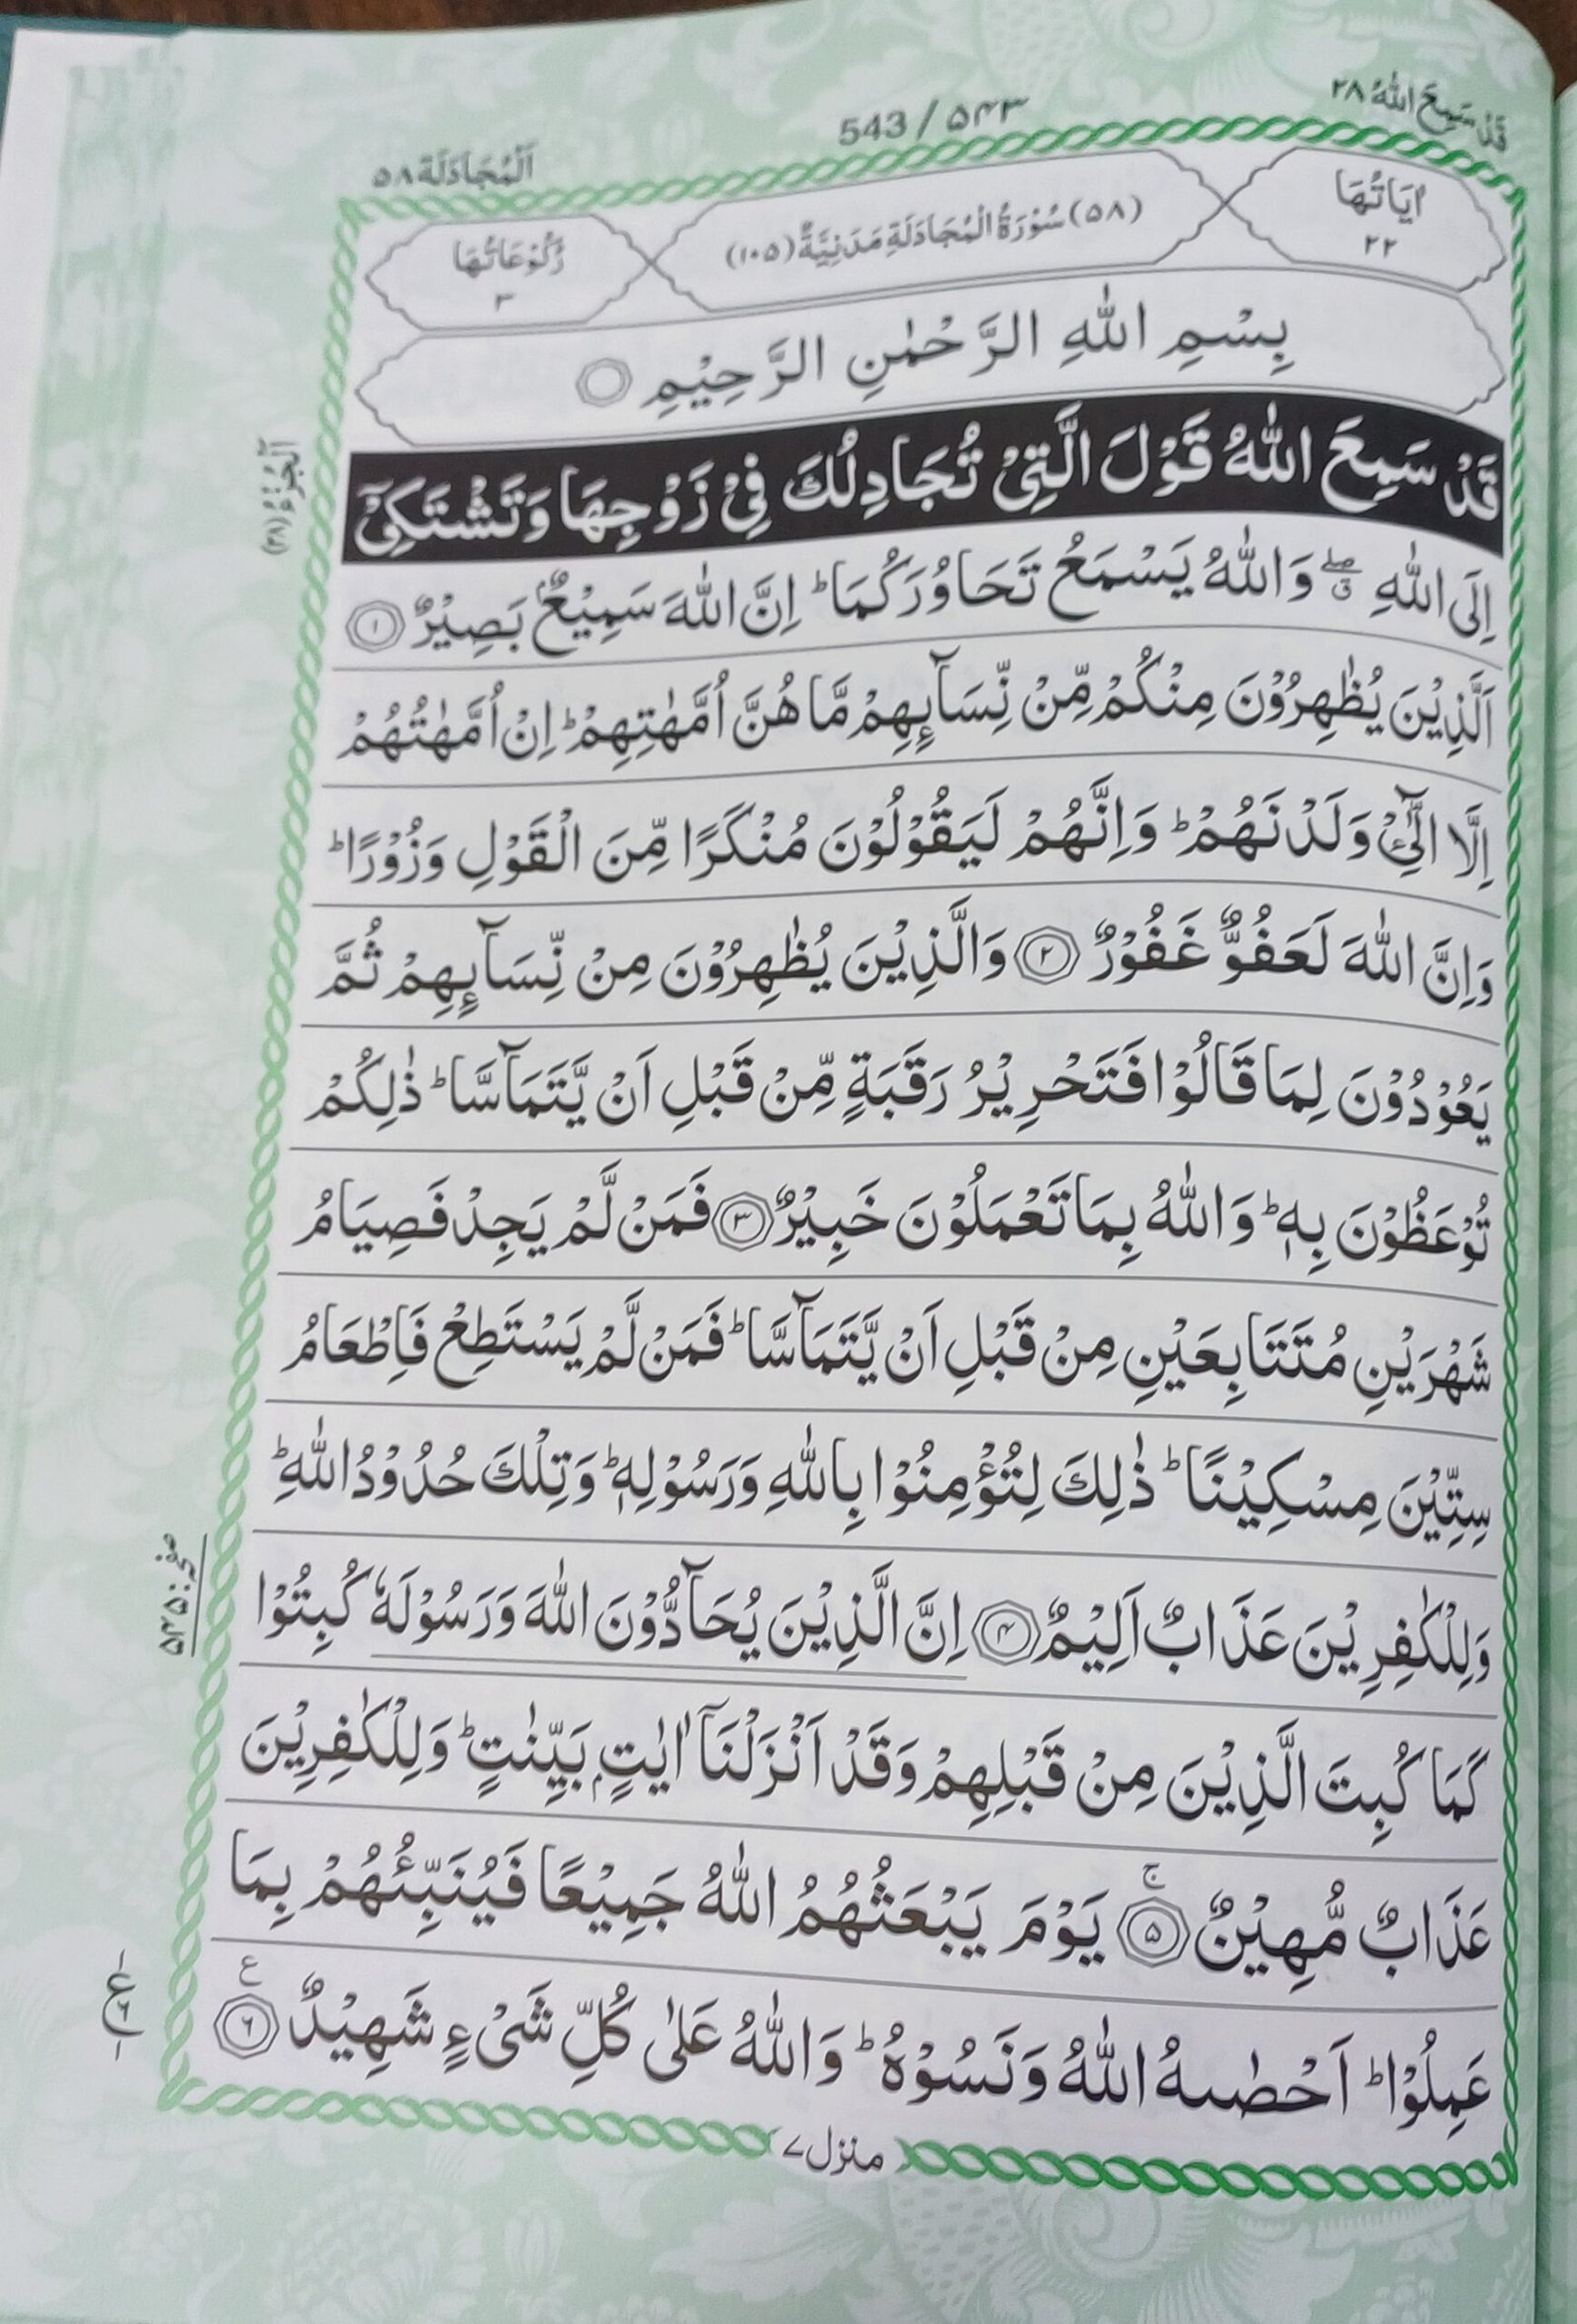 قَدْ سَمِعَ اللّٰهُ ٢٨
543 / ۵۴۳
اَلْمُجَادَلَة ۵۸
اٰيَاتُهَا ٢٢
(۵۸) سُوْرَةُ الْمُجَادَلَةِ مَدَنِيَّةٌ (۱۰۵)
رُكُوْعَاتُهَا ٣
بِسْمِ اللّٰهِ الرَّحْمٰنِ الرَّحِيْمِ
قَدْ سَمِعَ اللّٰهُ قَوْلَ الَّتِيْ تُجَادِلُكَ فِيْ زَوْجِهَا وَتَشْتَكِيْٓ
اِلَى اللّٰهِ ۖۗ وَاللّٰهُ يَسْمَعُ تَحَاوُرَكُمَا ؕ اِنَّ اللّٰهَ سَمِيْعٌۢ بَصِيْرٌ ﴿۱﴾
اَلَّذِيْنَ يُظٰهِرُوْنَ مِنْكُمْ مِّنْ نِّسَآىِٕهِمْ مَّا هُنَّ اُمَّهٰتِهِمْ ؕ اِنْ اُمَّهٰتُهُمْ
اِلَّا الّٰٓئِْ وَلَدْنَهُمْ ؕ وَاِنَّهُمْ لَيَقُوْلُوْنَ مُنْكَرًا مِّنَ الْقَوْلِ وَزُوْرًا ؕ
وَاِنَّ اللّٰهَ لَعَفُوٌّ غَفُوْرٌ ﴿۲﴾ وَالَّذِيْنَ يُظٰهِرُوْنَ مِنْ نِّسَآىِٕهِمْ ثُمَّ
يَعُوْدُوْنَ لِمَا قَالُوْا فَتَحْرِيْرُ رَقَبَةٍ مِّنْ قَبْلِ اَنْ يَّتَمَآسَّا ؕ ذٰلِكُمْ
تُوْعَظُوْنَ بِهٖ ؕ وَاللّٰهُ بِمَا تَعْمَلُوْنَ خَبِيْرٌ ﴿۳﴾ فَمَنْ لَّمْ يَجِدْ فَصِيَامُ
شَهْرَيْنِ مُتَتَابِعَيْنِ مِنْ قَبْلِ اَنْ يَّتَمَآسَّا ؕ فَمَنْ لَّمْ يَسْتَطِعْ فَاِطْعَامُ
سِتِّيْنَ مِسْكِيْنًا ؕ ذٰلِكَ لِتُؤْمِنُوْا بِاللّٰهِ وَرَسُوْلِهٖ ؕ وَتِلْكَ حُدُوْدُ اللّٰهِ ؕ
وَلِلْكٰفِرِيْنَ عَذَابٌ اَلِيْمٌ ﴿۴﴾ اِنَّ الَّذِيْنَ يُحَآدُّوْنَ اللّٰهَ وَرَسُوْلَهٗ كُبِتُوْا
كَمَا كُبِتَ الَّذِيْنَ مِنْ قَبْلِهِمْ وَقَدْ اَنْزَلْنَآ اٰيٰتٍۭ بَيِّنٰتٍ ؕ وَلِلْكٰفِرِيْنَ
عَذَابٌ مُّهِيْنٌ ﴿۵﴾ۚ يَوْمَ يَبْعَثُهُمُ اللّٰهُ جَمِيْعًا فَيُنَبِّئُهُمْ بِمَا
عَمِلُوْا ؕ اَحْصٰىهُ اللّٰهُ وَنَسُوْهُ ؕ وَاللّٰهُ عَلٰى كُلِّ شَىْءٍ شَهِيْدٌ ﴿۶﴾ ع
منزل ۷
اَلْجُزْءُ (۲۸)